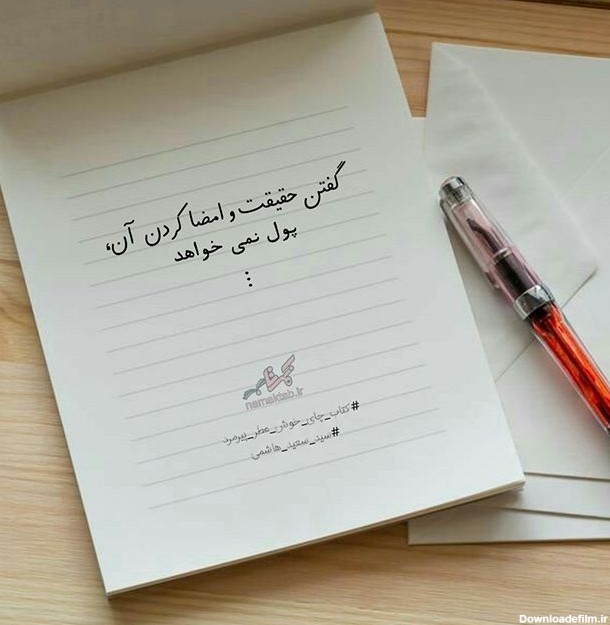 گفتن حقیقت و امضا کردن آن،
پول نمی خواهد
...
namaktab.ir
#کتاب_چای_خوش_عطر_پیرمرد
#سید_سعید_هاشمی
Downloadefilm.ir